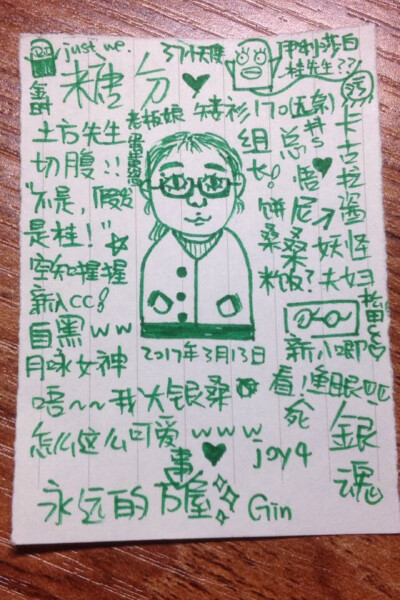 just we.
糖分
伊利莎白
桂先生??
老板娘
矮杉170
土方先生
切腹!!
"不是,假发
是桂!"
组长!
总悟
卡古拉酱
饼尼
桑桑
米饭?
妖怪
夫妇
空知握握
新八CC!
自黑ww
月咏女神
2017年3月13日
新八唧
看!睡眠
死
唔~~我大银桑
怎么这么可爱www
joy4
银魂
永远的万事屋
Gin